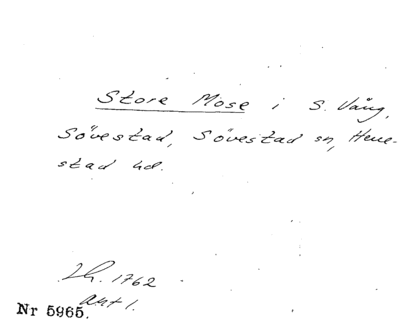 Store Mose i S. Vång,
Sövestad, Sövestad sn, Herre-
stad hd.
Lh. 1762
akt 1.
Nr 5965.